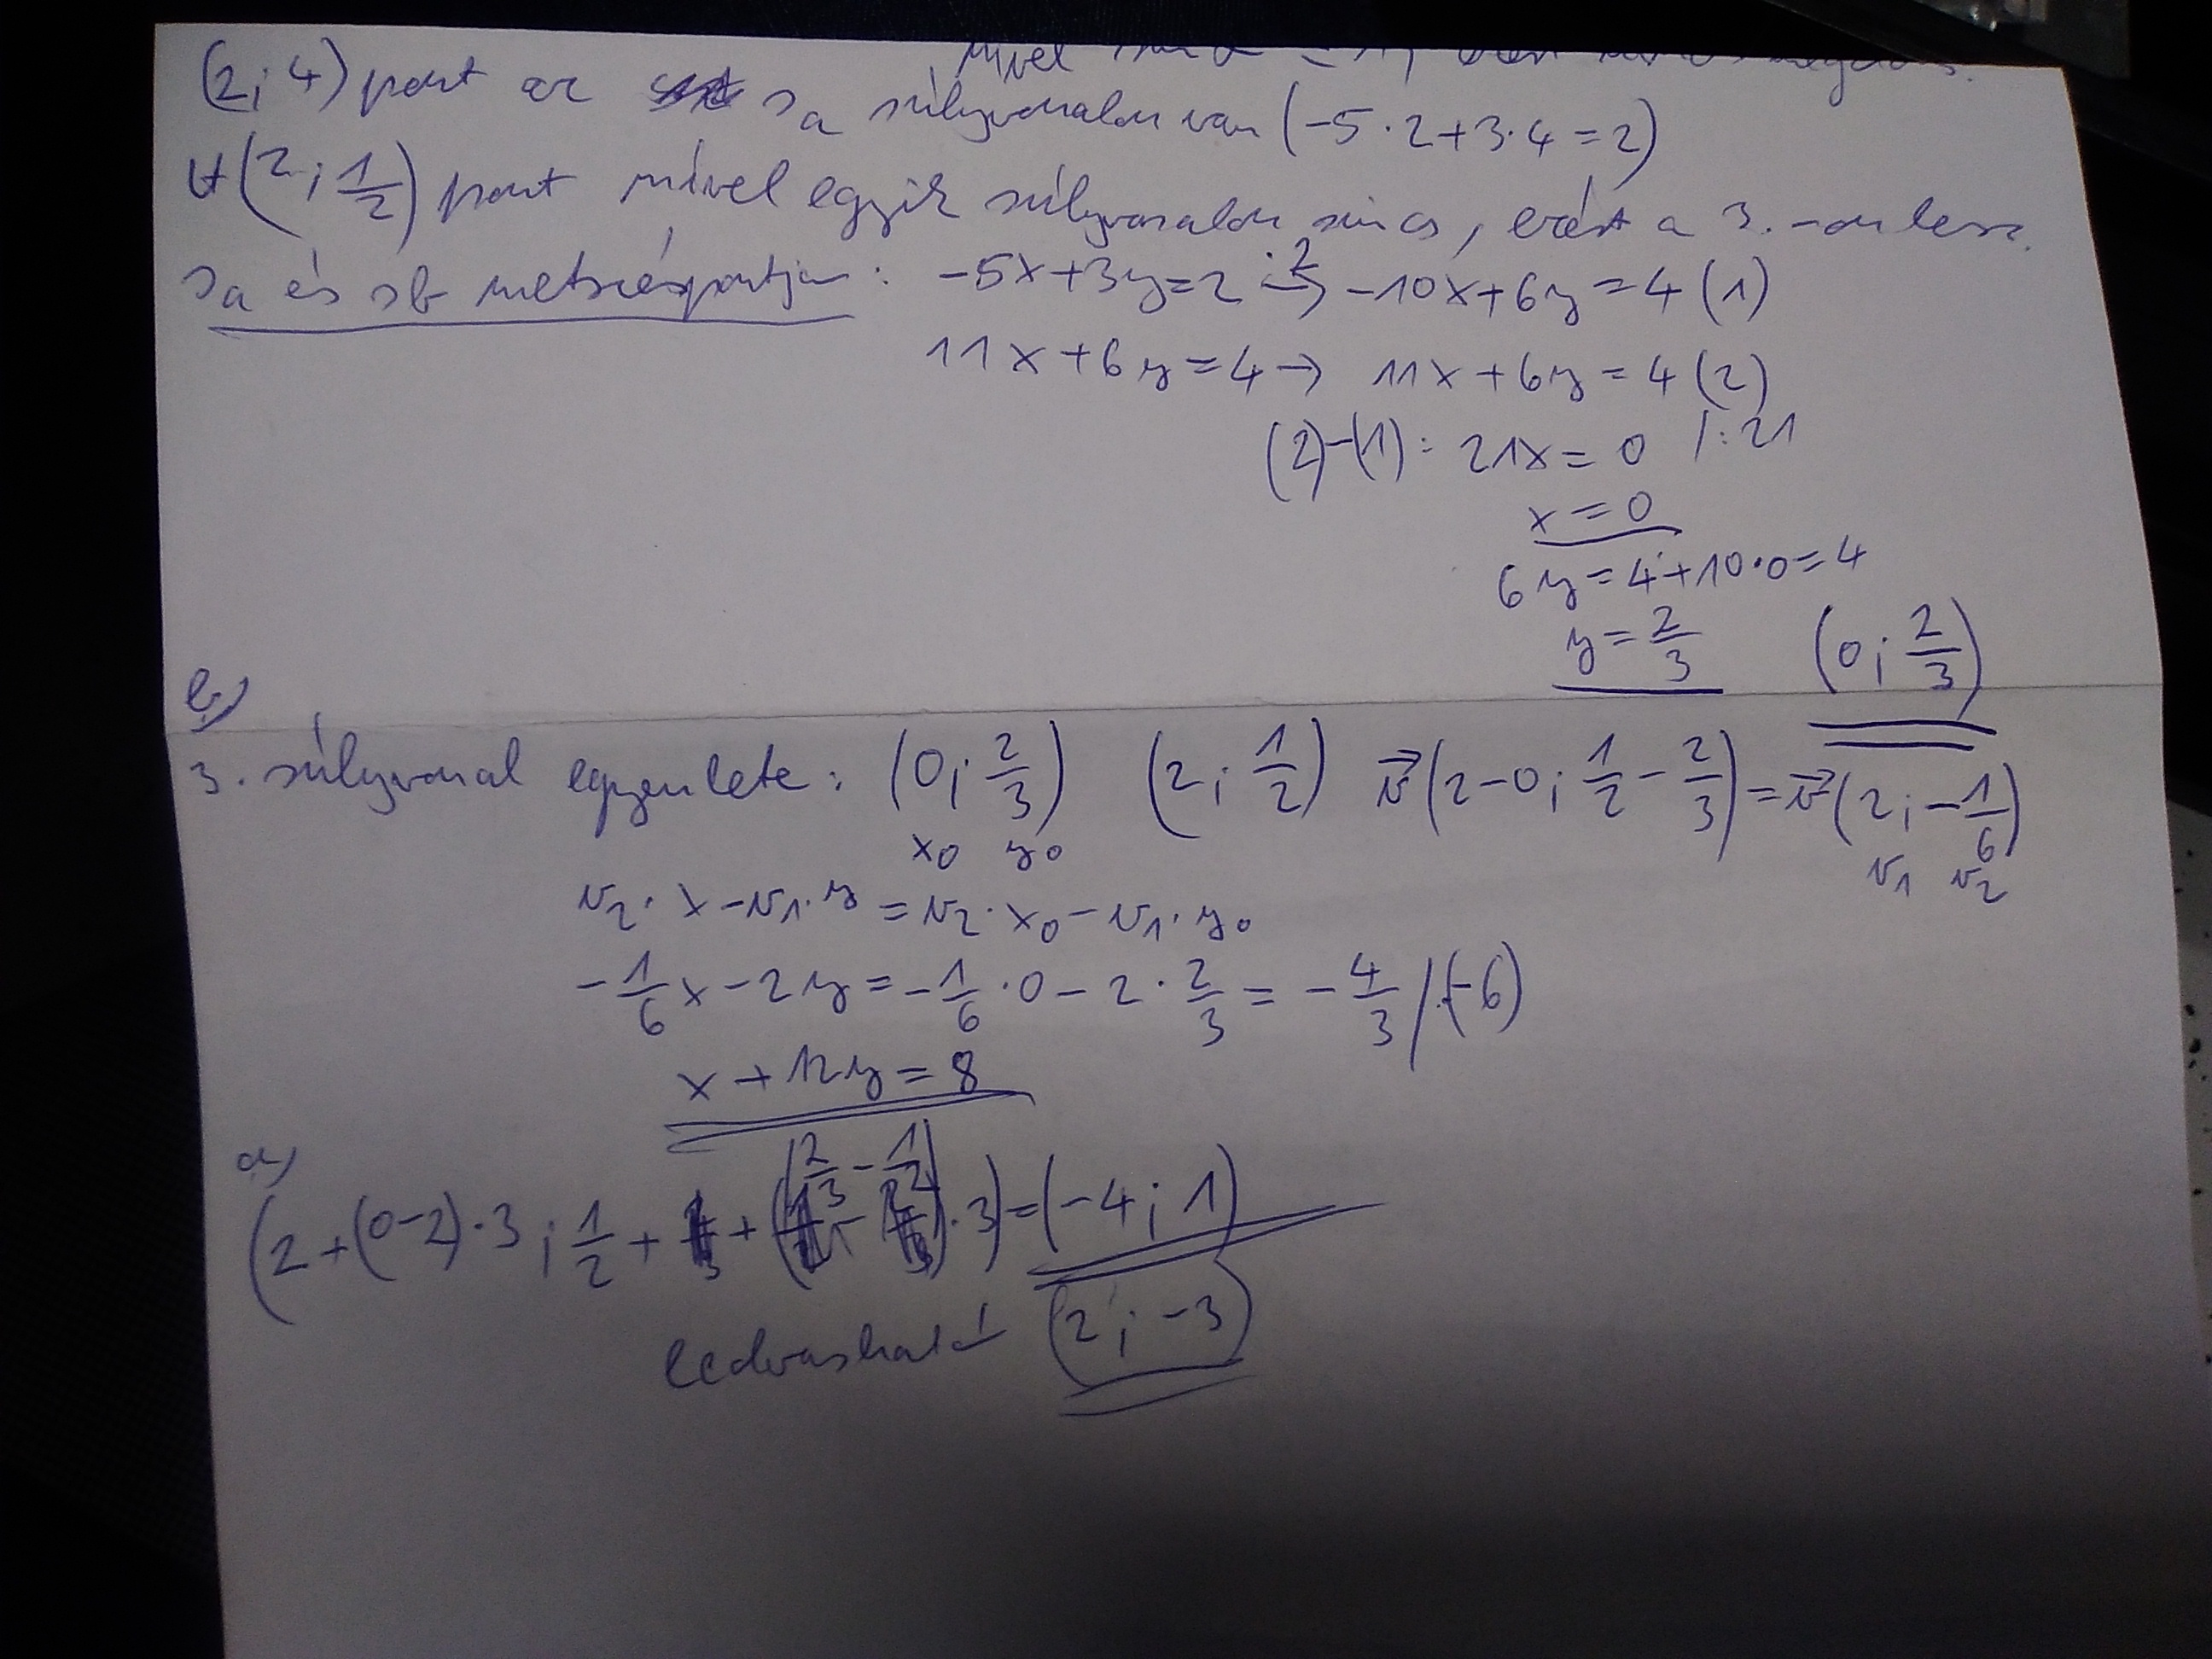 (2; 4) pont az sa súlyvonalon van (-5·2+3·4=2)
A (2; 1/2) pont mivel egyik súlyvonalon sincs, ezért a 3. -on lesz.
sa és sb metszéspontja: -5x+3y=2 ·2→ -10x+6y=4 (1)
11x+6y=4 → 11x+6y=4 (2)
(2)-(1): 21x=0 /:21
x=0
6y=4+10·0=4
y=2/3 (0; 2/3)
b)
3. súlyvonal egyenlete: (0; 2/3) (2; 1/2) v⃗(2-0; 1/2-2/3)=v⃗(2; -1/6)
x0 y0 v1 v2
v2·x-v1·y=v2·x0-v1·y0
-1/6x-2y=-1/6·0-2·2/3=-4/3 /·(-6)
x+12y=8
a)
(2+(0-2)·3; 1/2+(2/3-1/2)·3)=(-4; 1)
(2; -3)